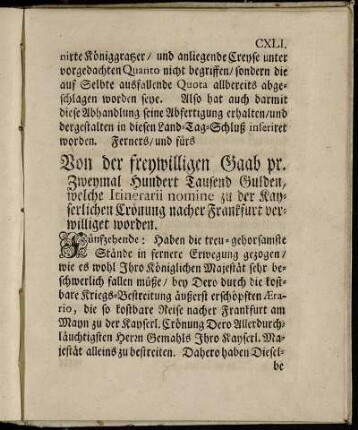 CXLI.
nirte Königgratzer/ und anliegende Creyse unter
vorgedachten Quanto nicht begriffen/ sondern die
auf Selbte ausfallende Quota allbereits abge-
schlagen worden seye. Also hat auch darmit
diese Abhandlung seine Abfertigung erhalten/ und
dergestalten in diesen Land-Tag-Schluß inseriret
worden. Ferners/ und fürs
Von der freywilligen Gaab pr.
Zweymal Hundert Tausend Gulden,
welche Itinerarii nomine zu der Kay-
serlichen Crönung nacher Frankfurt ver-
williget worden.
Fünfzehende: Haben die treu-gehorsamste
Stände in fernere Erwegung gezogen/
wie es wohl Ihro Königlichen Majestät sehr be-
schwerlich fallen müße/ bey Dero durch die kost-
bare Kriegs-Bestreitung äußerst erschöpften Æra-
rio, die so kostbare Reise nacher Frankfurt am
Mayn zu der Kayserl. Crönung Dero Allerdurch-
läuchtigsten Herrn Gemahls Ihro Kayserl. Ma-
jestät alleins zu bestreiten. Dahero haben Diesel-
be